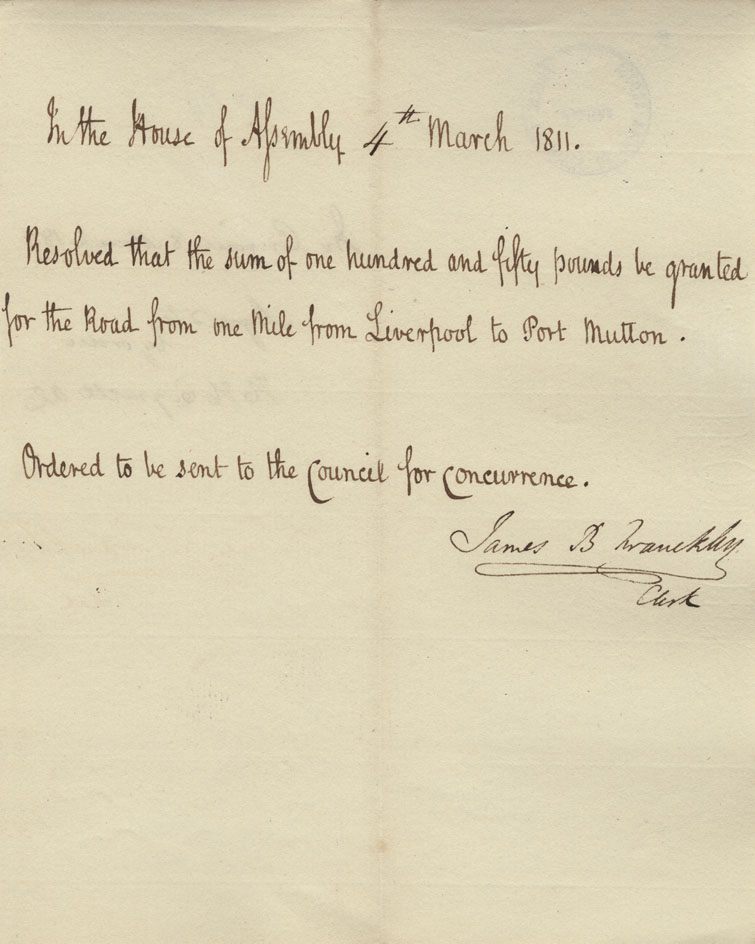 In the House of Assembly 4th March 1811.
Resolved that the sum of one hundred and fifty pounds be granted
for the Road from one Mile from Liverpool to Port Mutton.
Ordered to be sent to the Council for concurrence.
James B Franckly
Clerk